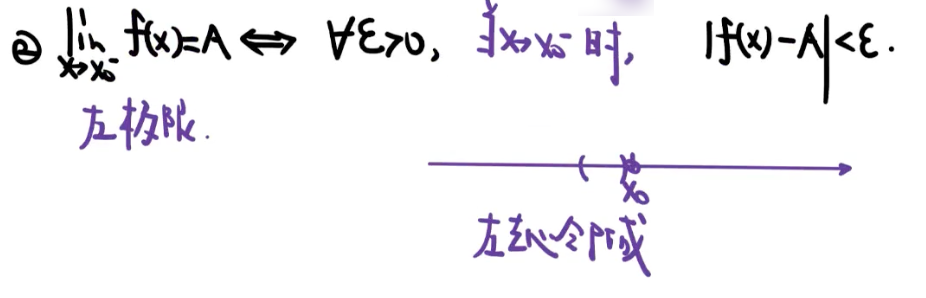 ② lim f(x)=A ⟺ ∀ε>0, 当x→x₀⁻时, |f(x)-A|<ε.
x→x₀⁻
左极限.
( )
x₀
左去心邻域